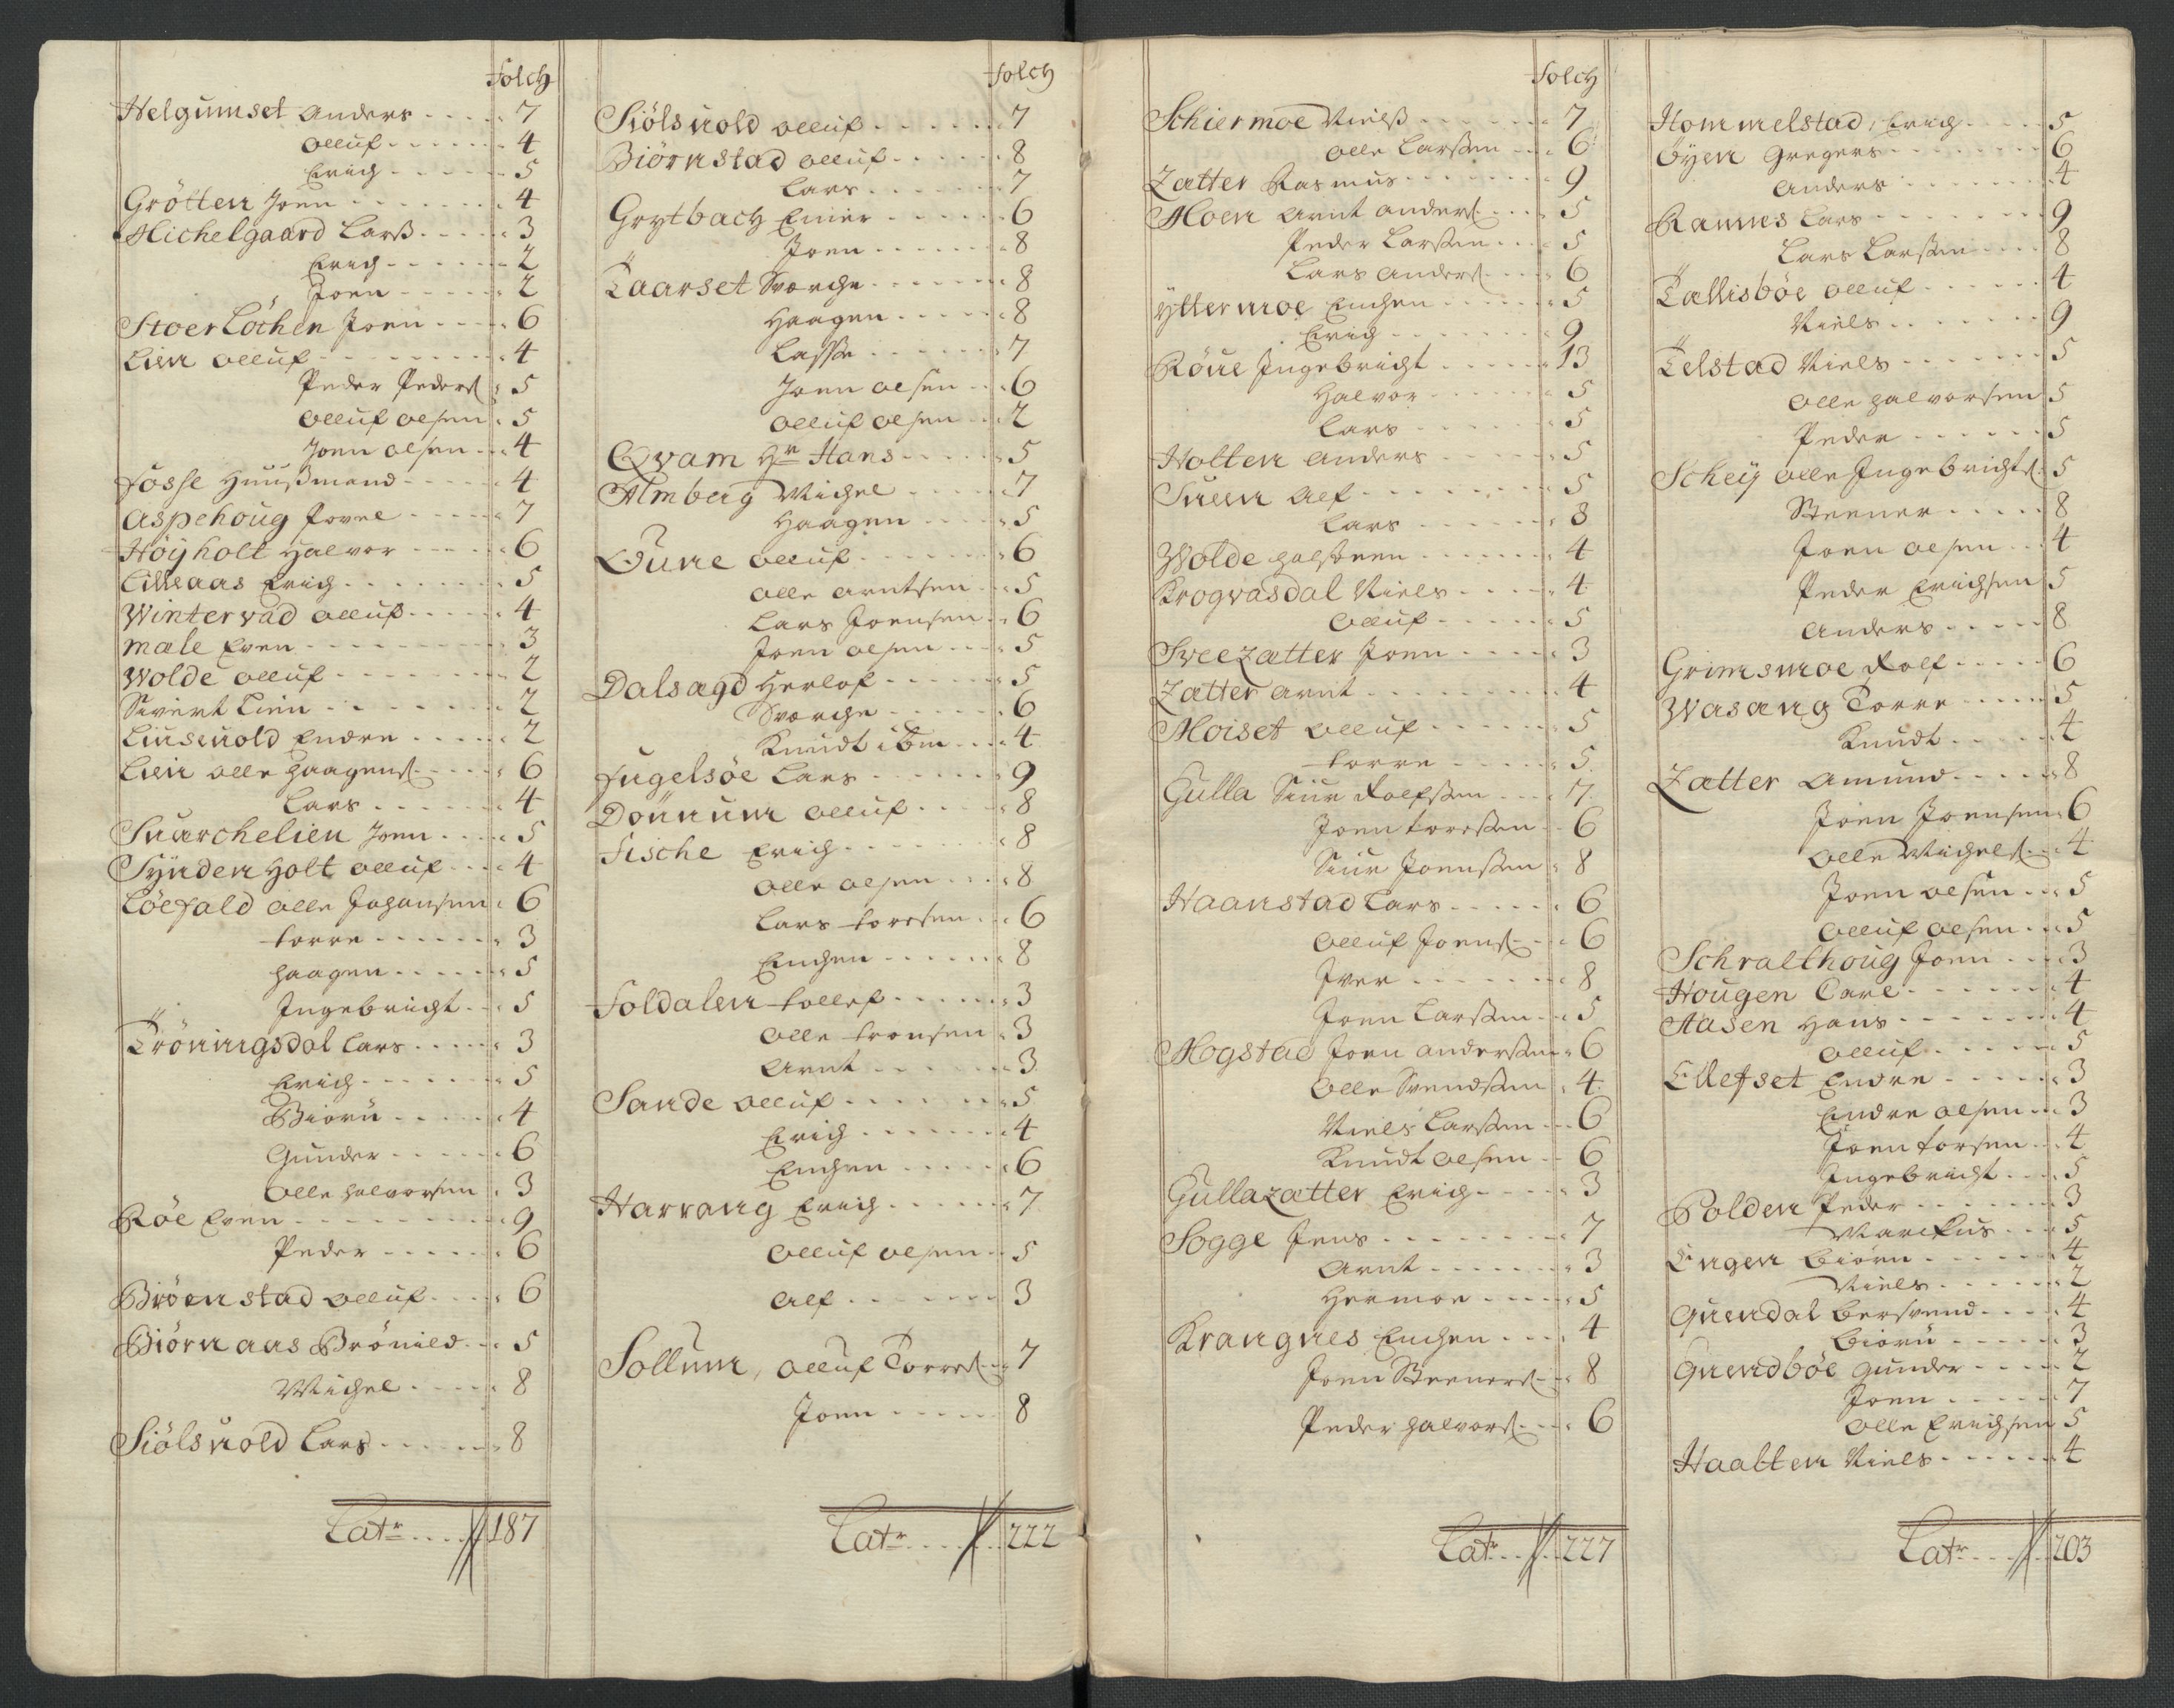 Folch
Helgumset Anders 7
Olluf 4
Erich 5
Grötten Joen 4
Michelgaard Larß 3
Erich 2
Joen 2
Stoer Löchen Joen 6
Lien Olluf 4
Peder Peders 5
Olluf Olsen 5
Joen Olsen 4
Fosse Huußmand 4
Aspehoug Povel 7
Höyholt Halvor 6
Lilleaas Erich 5
Wintervad Olluf 4
Male Even 3
Wolde Olluf 2
Sivert Lien 2
Liusvold Endre 2
Lien Olle Haagens 6
Lars 4
Suarchelien Joen 5
Synden Holt Olluf 4
Löefald Olle Johansen 6
Torre 3
Haagen 5
Ingebricht 5
Tröningsdal Lars 3
Erich 5
Biörn 4
Gunder 6
Olle Halvorsen 3
Röe Even 9
Peder 6
Bröenstad Olluf 6
Biörnaas Brönild 5
Michel 8
Siölsvold Lars 8
Latr 187
Folch
Siölsvold Olluf 7
Biörnstad Olluf 8
Lars 7
Grytbach Einer 6
Joen 8
Taarset Sværche 8
Haagen 8
Lasse 7
Joen Olsen 6
Olluf Olsen 2
Qvam Hr Hans 5
Almberg Michel 7
Haagen 5
Oune Olluf 6
Olle Arntsen 5
Lars Joensen 6
Joen Olsen 5
Dalsægd Herlof 5
Sværche 6
Knudt ibm 4
Fugelsöe Lars 9
Dönnum Olluf 8
Fische Erich 8
Olle Olsen 8
Lars Toresen 6
Einchen 8
Foldalen Tollef 3
Olle Tronsen 3
Arnt 3
Sande Olluf 5
Erich 4
Einchen 6
Harrang Erich 7
Olluf Olsen 5
Alf 3
Sollum, Olluf Torres 7
Joen 8
Latr 222
Folch
Schiermoe Nielß 7
Olle Larssen 6
Zætter Rasmus 9
Moen Arnt Anders 5
Peder Larssen 5
Lars Anders 6
Yttermoe Einchen 5
Erich 9
Röue Ingebricht 13
Halvor 5
Lars 5
Holten Anders 5
Suen Alf 5
Lars 8
Wolde Halsteen 4
Krogvasdal Niels 4
Olluf 5
Sveezætter Joen 3
Zætter Arnt 4
Moiset Olluf 5
Torre 5
Gulla Siur Rolfssen 7
Joen Toressen 6
Siur Joenssen 8
Haanstad Lars 6
Olluf Joens 6
Iver 8
Joen Larssen 5
Mogstad Joen Anderssen 6
Olle Svendssen 4
Niels Larssen 6
Knudt Olsen 6
Gullazætter Erich 3
Sogge Jens 7
Arnt 3
Hermoe 5
Krangnes Einchen 4
Joen Steeners 8
Peder Halvors 6
Latr 227
Hommelstad, Erich 5
Öyen Gregers 6
Anders 4
Rannes Lars 9
Lars Larssen 8
Tællisböe Olluf 4
Niels 9
Telstad Niels 5
Olle Halvorsen 5
Peder 5
Schey Olle Ingebrichts 5
Steener 8
Joen Olsen 4
Peder Erichsen 5
Anders 8
Grimsmoe Rolf 6
Wasang Torre 5
Knudt 4
Zætter Amund 8
Joen Joensen 6
Olle Michels 4
Joen Olsen 5
Olluf Olsen 5
Schralthoug Joen 3
Hougen Carl 4
Aasen Hans 4
Olluf 5
Ellefset Endre 3
Endre Olsen 3
Joen Torsen 4
Ingebricht 5
Polden Peder 3
Marckus 5
Engen Biörn 4
Niels 2
Quendal Bersvend 4
Biörn 3
Quendböe Gunder 2
Joen 7
Olle Erichsen 5
Haalten Niels 4
Latr 203